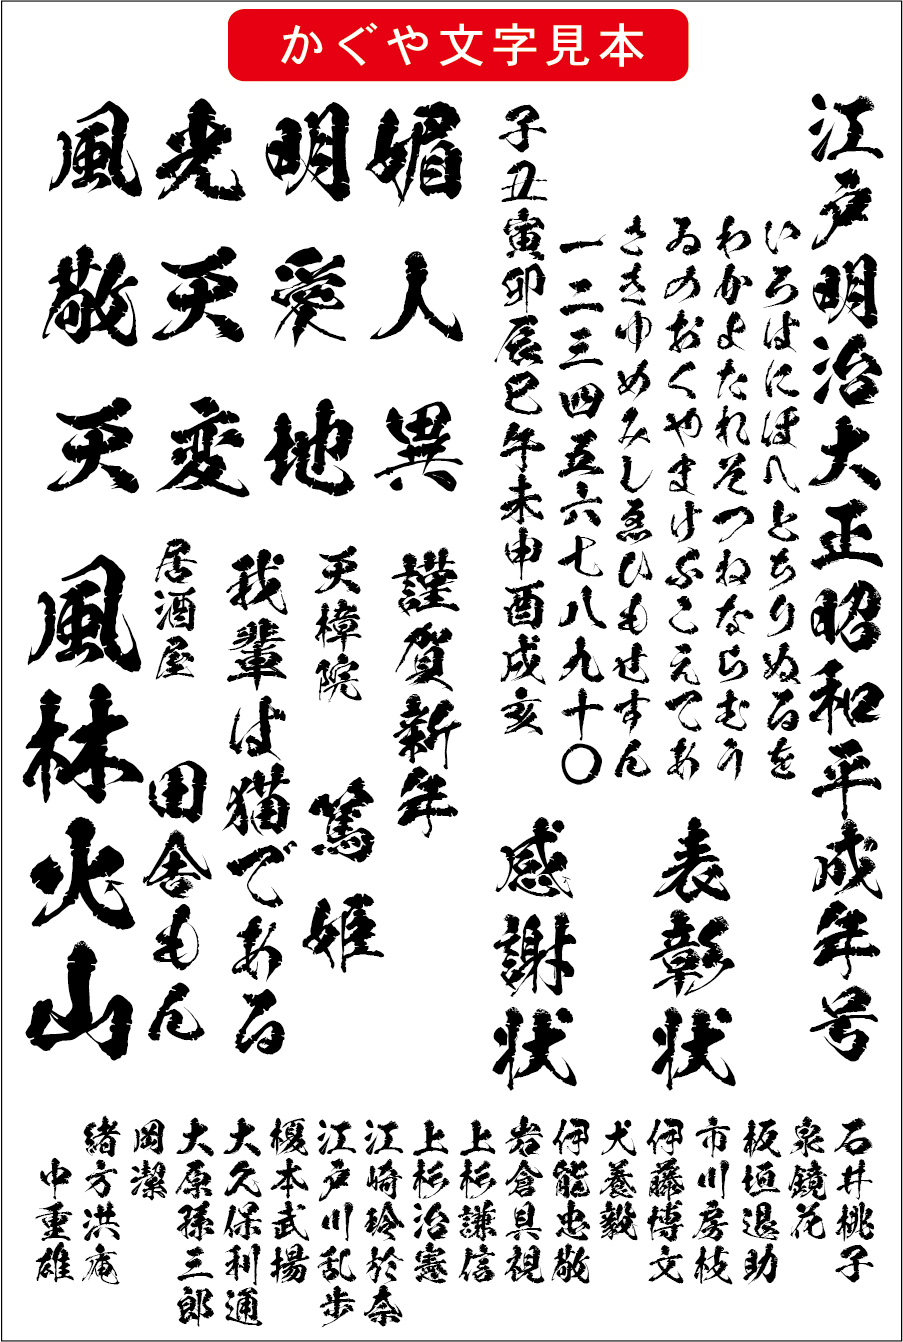 かぐや文字見本
江戸明治大正昭和平成年号
いろはにほへとちりぬるを
わかよたれそつねならむう
ゐのおくやまけふこえてあ
さきゆめみしゑひもせすん
一二三四五六七八九十〇
子丑寅卯辰巳午未申酉戌亥
表彰状
感謝状
風光明媚
敬天愛人
天変地異
謹賀新年
天樟院 篤姫
我輩は猫である
居酒屋 田舎もん
風林火山
石井桃子
泉鏡花
板垣退助
市川房枝
伊藤博文
犬養毅
伊能忠敬
岩倉具視
上杉謙信
上杉治憲
江崎玲於奈
江戸川乱歩
榎本武揚
大久保利通
大原孫三郎
岡潔
緒方洪庵
中重雄